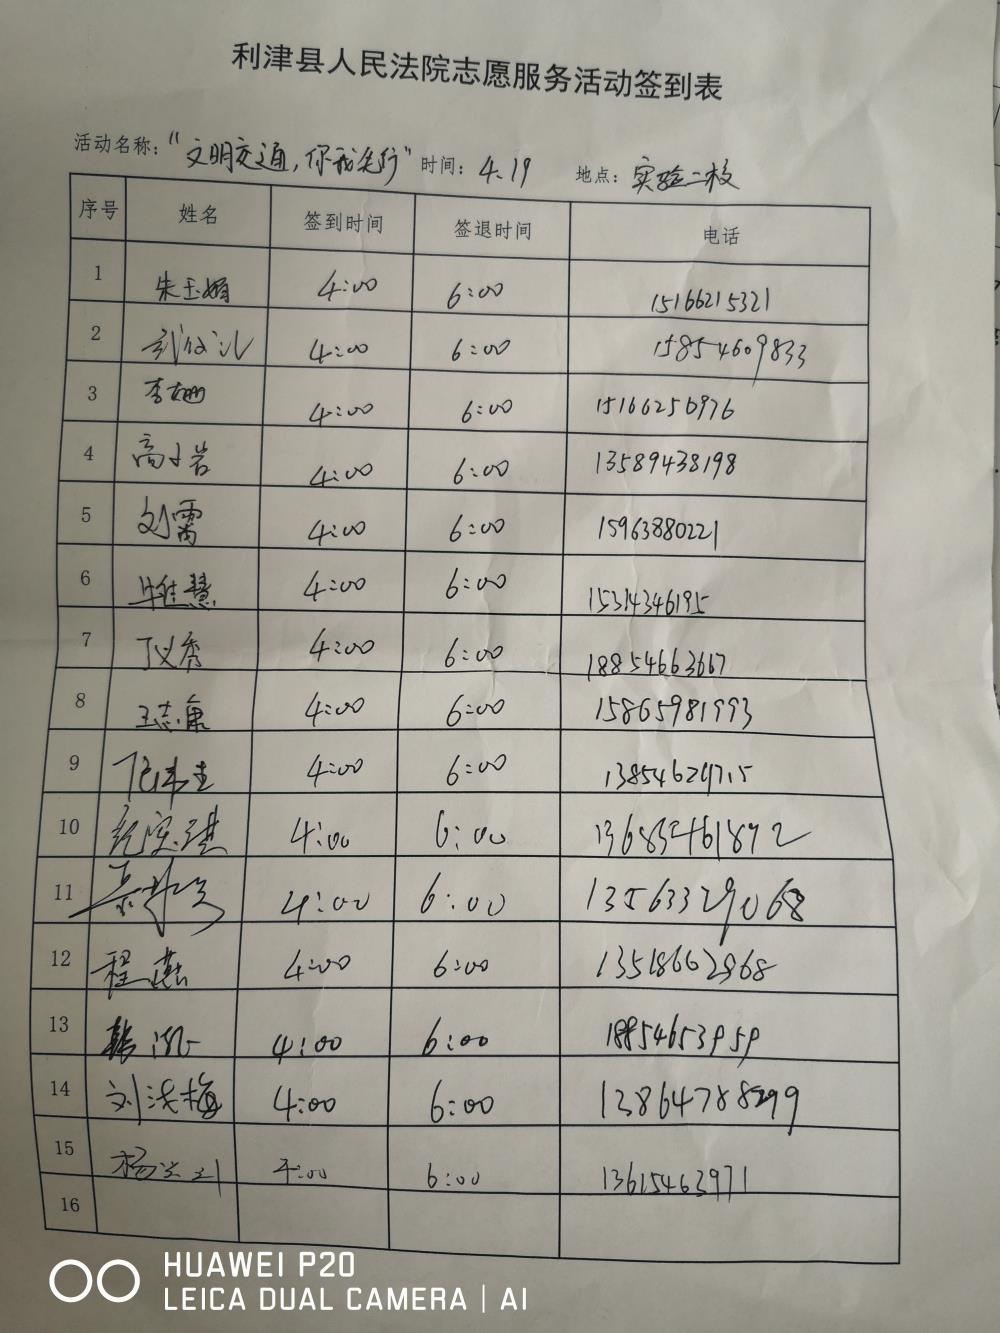 利津县人民法院志愿服务活动签到表
活动名称："文明交通，你我先行" 时间：4.19 地点：实验二校
序号 姓名 签到时间 签退时间 电话
1 朱玉娟 4:00 6:00 15166215321
2 4:00 6:00 15854609833
3 李姗 4:00 6:00 15166256976
4 高小岩 4:00 6:00 13589438198
5 刘霄 4:00 6:00 15963880221
6 4:00 6:00 15314346195
7 丁义秀 4:00 6:00 18854663667
8 王志康 4:00 6:00 15865981993
9 4:00 6:00
10 4:00 6:00
11 4:00 6:00 13563329068
12 程燕 4:00 6:00 13518662968
13 4:00 6:00 18854653959
14 刘洪梅 4:00 6:00
15 4:00 6:00 13615463971
16
HUAWEI P20
LEICA DUAL CAMERA | AI